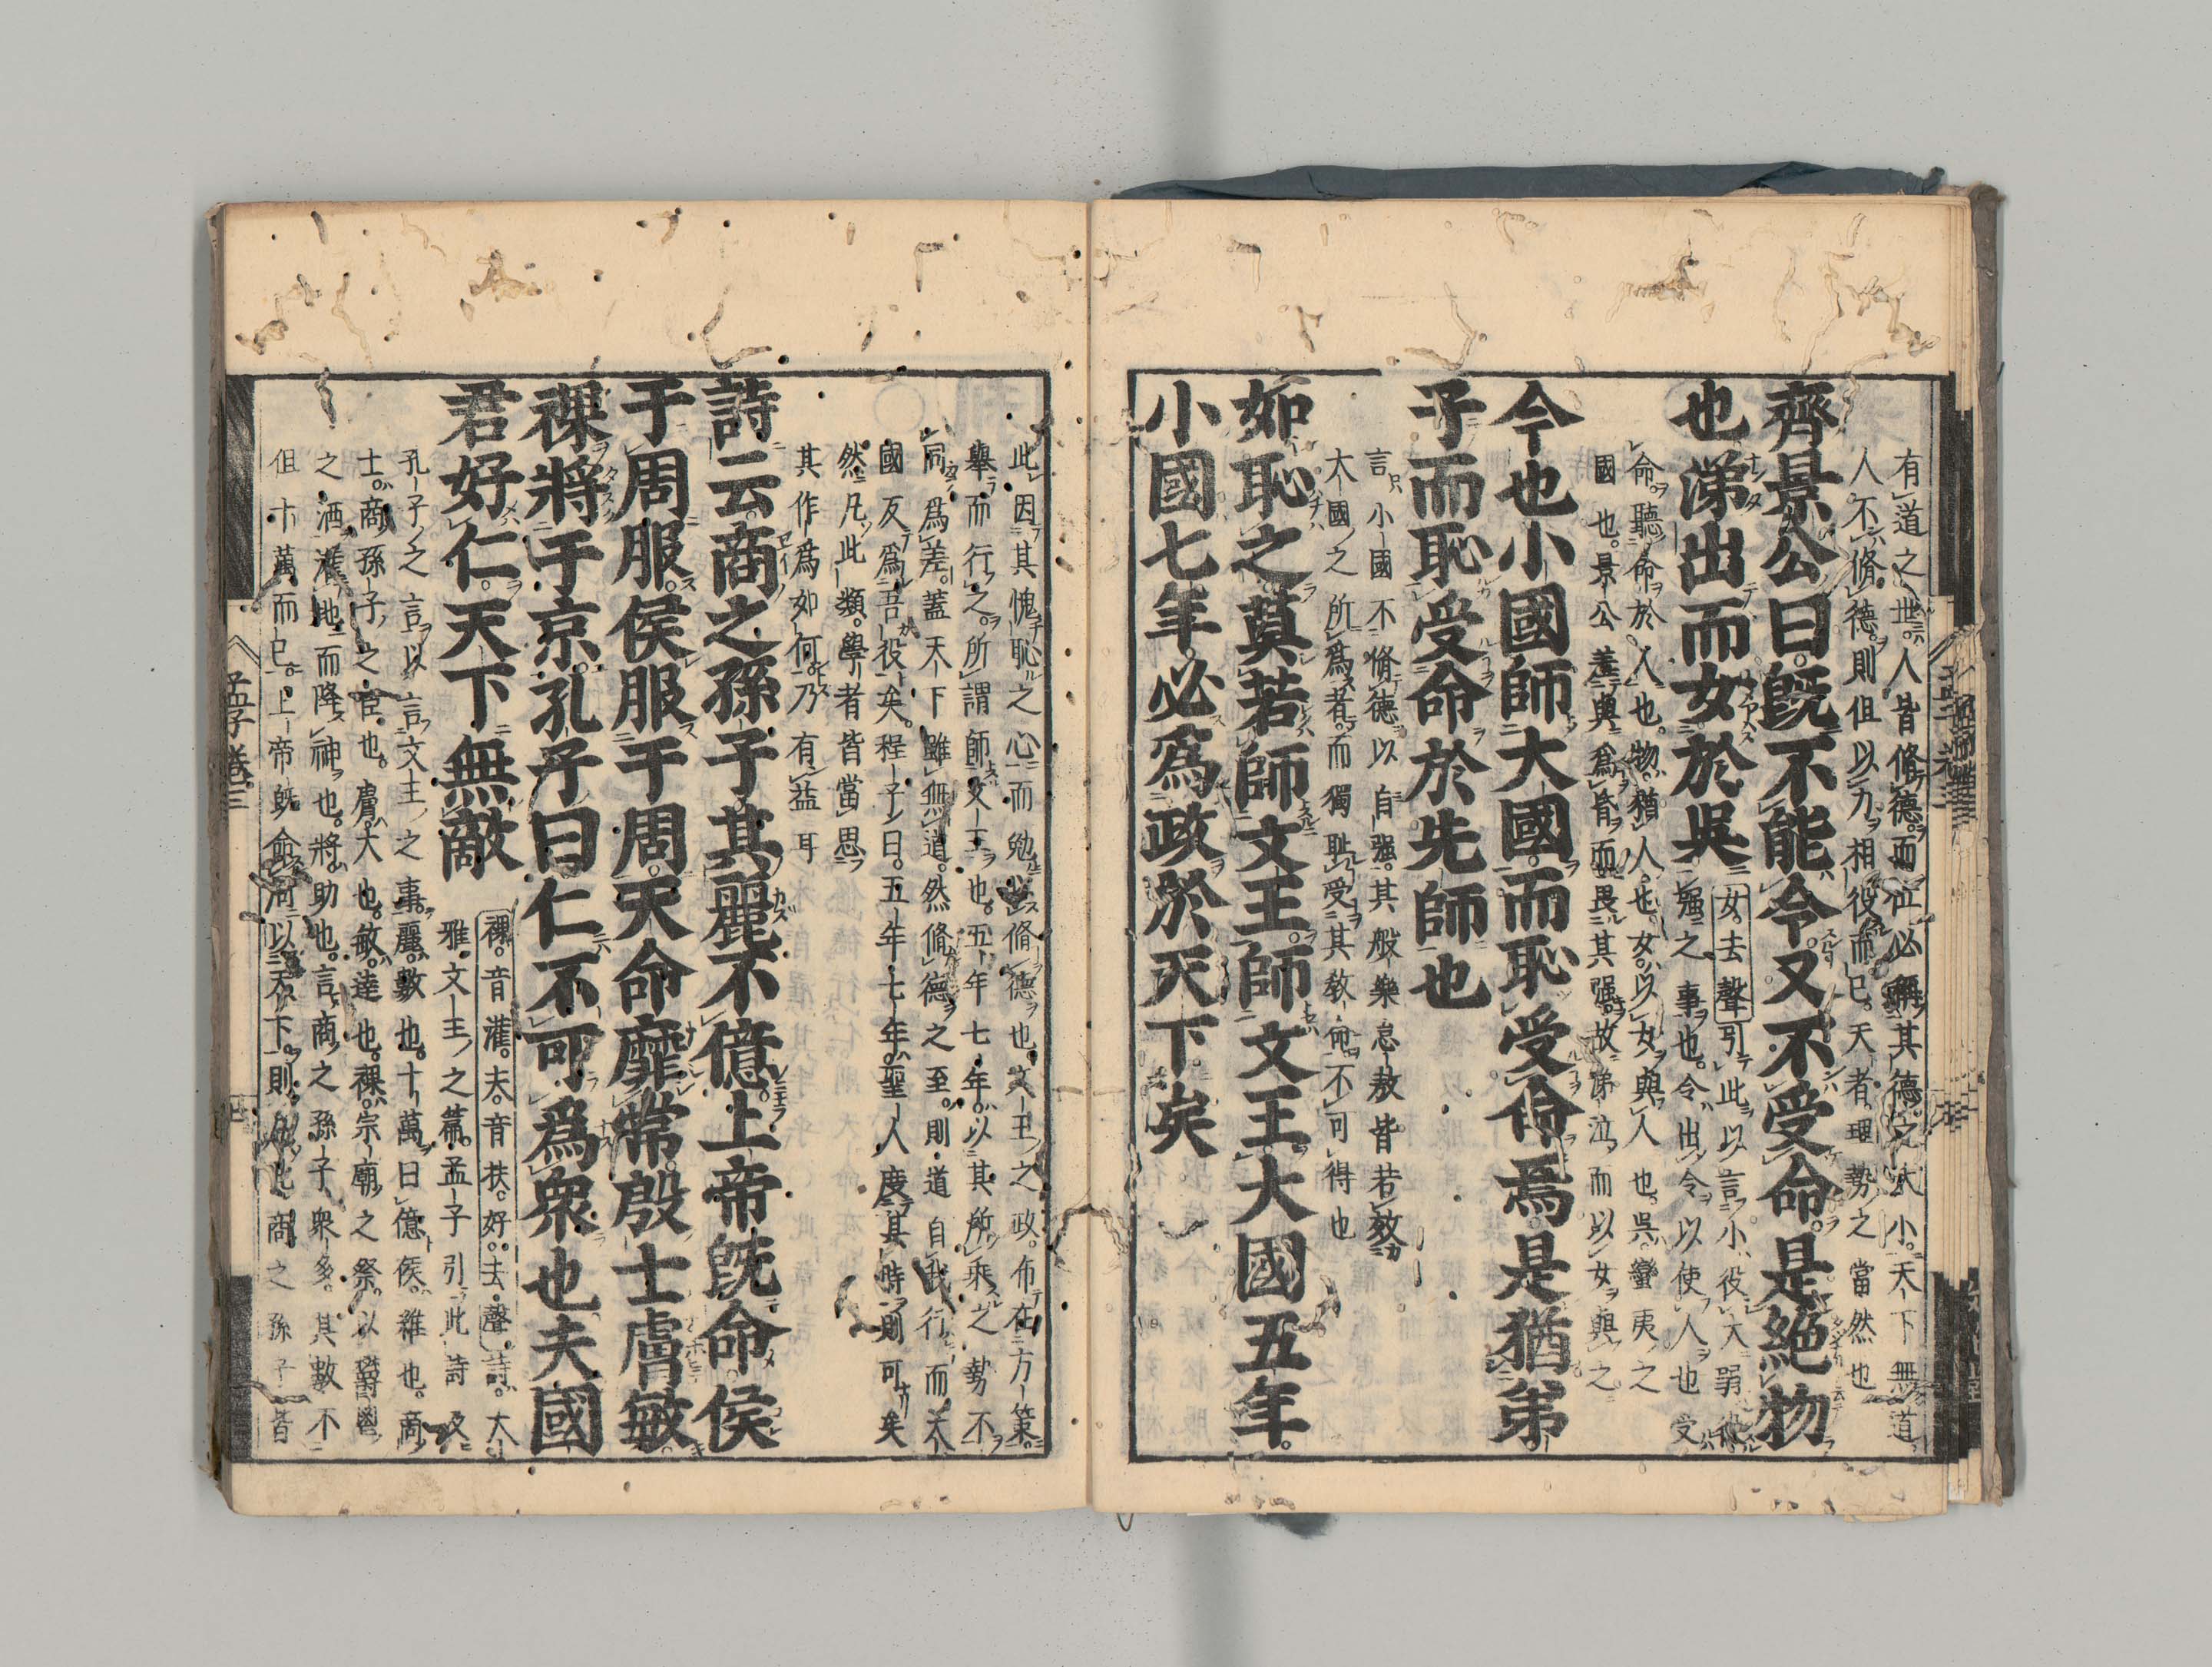 有道之世。人皆脩德。而位必稱其德之大小。天下無道
人不脩德。則但以力相役而已。天者。理勢之當然也
齊景公曰。旣不能令。又不受命。是絕物
也。涕出而女於吳
女。去聲 引此以言小役大弱役
强之事也。令。出令以使人也 受
命。聽命於人也。物。猶人也。女。以女與人也。吳。蠻夷之
國也。景公羞與爲昏。而畏其强。故涕泣而以女與之
今也小國師大國。而恥受命焉。是猶弟
子而恥受命於先師也
言小國不脩德以自强。其般樂怠敖。皆若效
大國之所爲者。而獨恥受其敎命。不可得也
如恥之。莫若師文王。師文王。大國五年。
小國七年。必爲政於天下矣
此因其愧恥之心。而勉以脩德也。文王之政。布在方策。
舉而行之。所謂師文王也。五年七年。以其所乘之勢不
同爲差。蓋天下雖無道。然脩德之至。則道自我行。而大
國反爲吾役矣。程子曰。五年七年。聖人度其時則可矣
然凡此類。學者皆當思
其作爲如何。乃有益耳
詩云。商之孫子。其麗不億。上帝旣命。侯
于周服。侯服于周。天命靡常。殷士膚敏。
祼將于京。孔子曰。仁不可爲衆也。夫國
君好仁。天下無敵
祼。音灌。夫。音扶。好。去聲 詩。大
雅。文王之篇。孟子引此詩及
孔子之言。以言文王之事。麗。數也。十萬曰億。侯。維也。商
士。商孫子之臣也。膚。大也。敏。達也。祼。宗廟之祭。以鬱鬯
之酒。灌地而降神也。將。助也。言商之孫子衆多。其數不
但十萬而已。上帝旣命周以天下。則凡此商之孫子。皆
孟子卷三